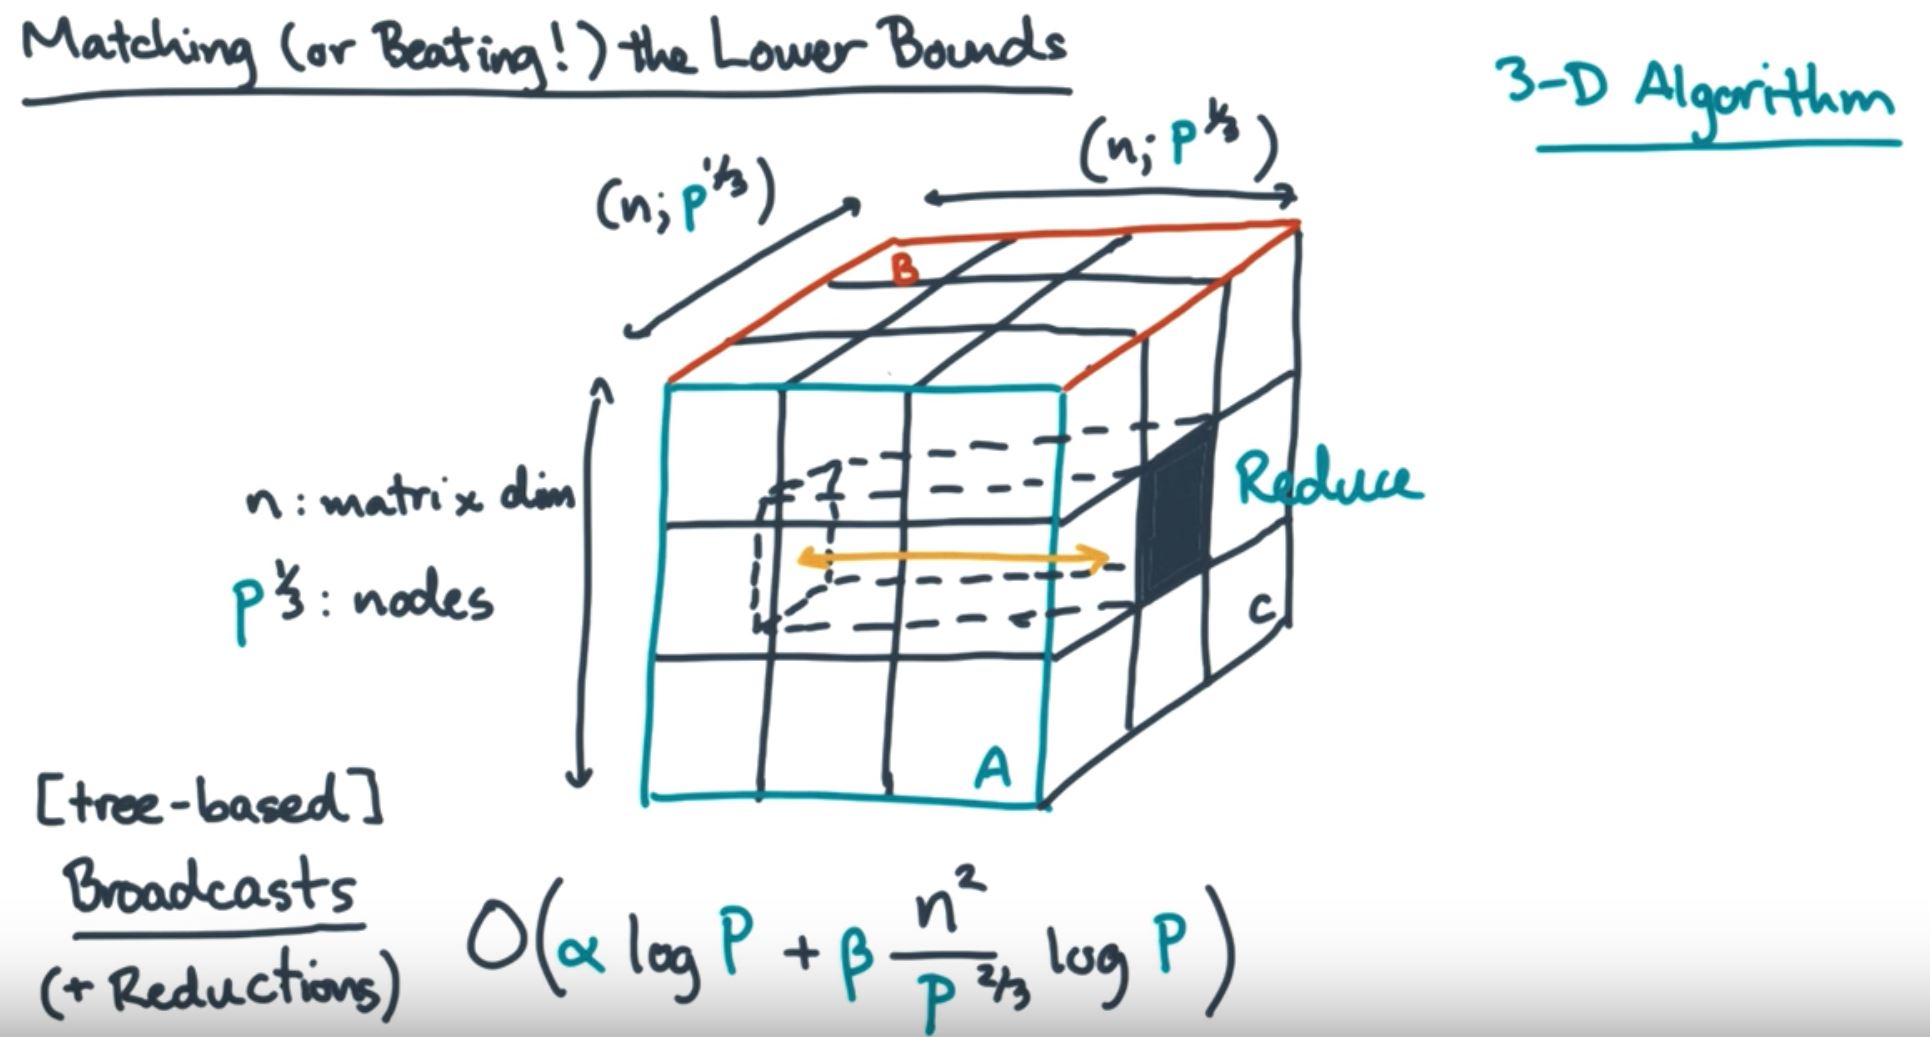 Matching (or Beating!) the Lower Bounds
3-D Algorithm
(n; P^1/3)
(n; P^1/3)
B
n: matrix dim
P^1/3: nodes
Reduce
C
A
[tree-based]
Broadcasts
(+ Reductions)
O(α log P + β n^2/P^2/3 log P)